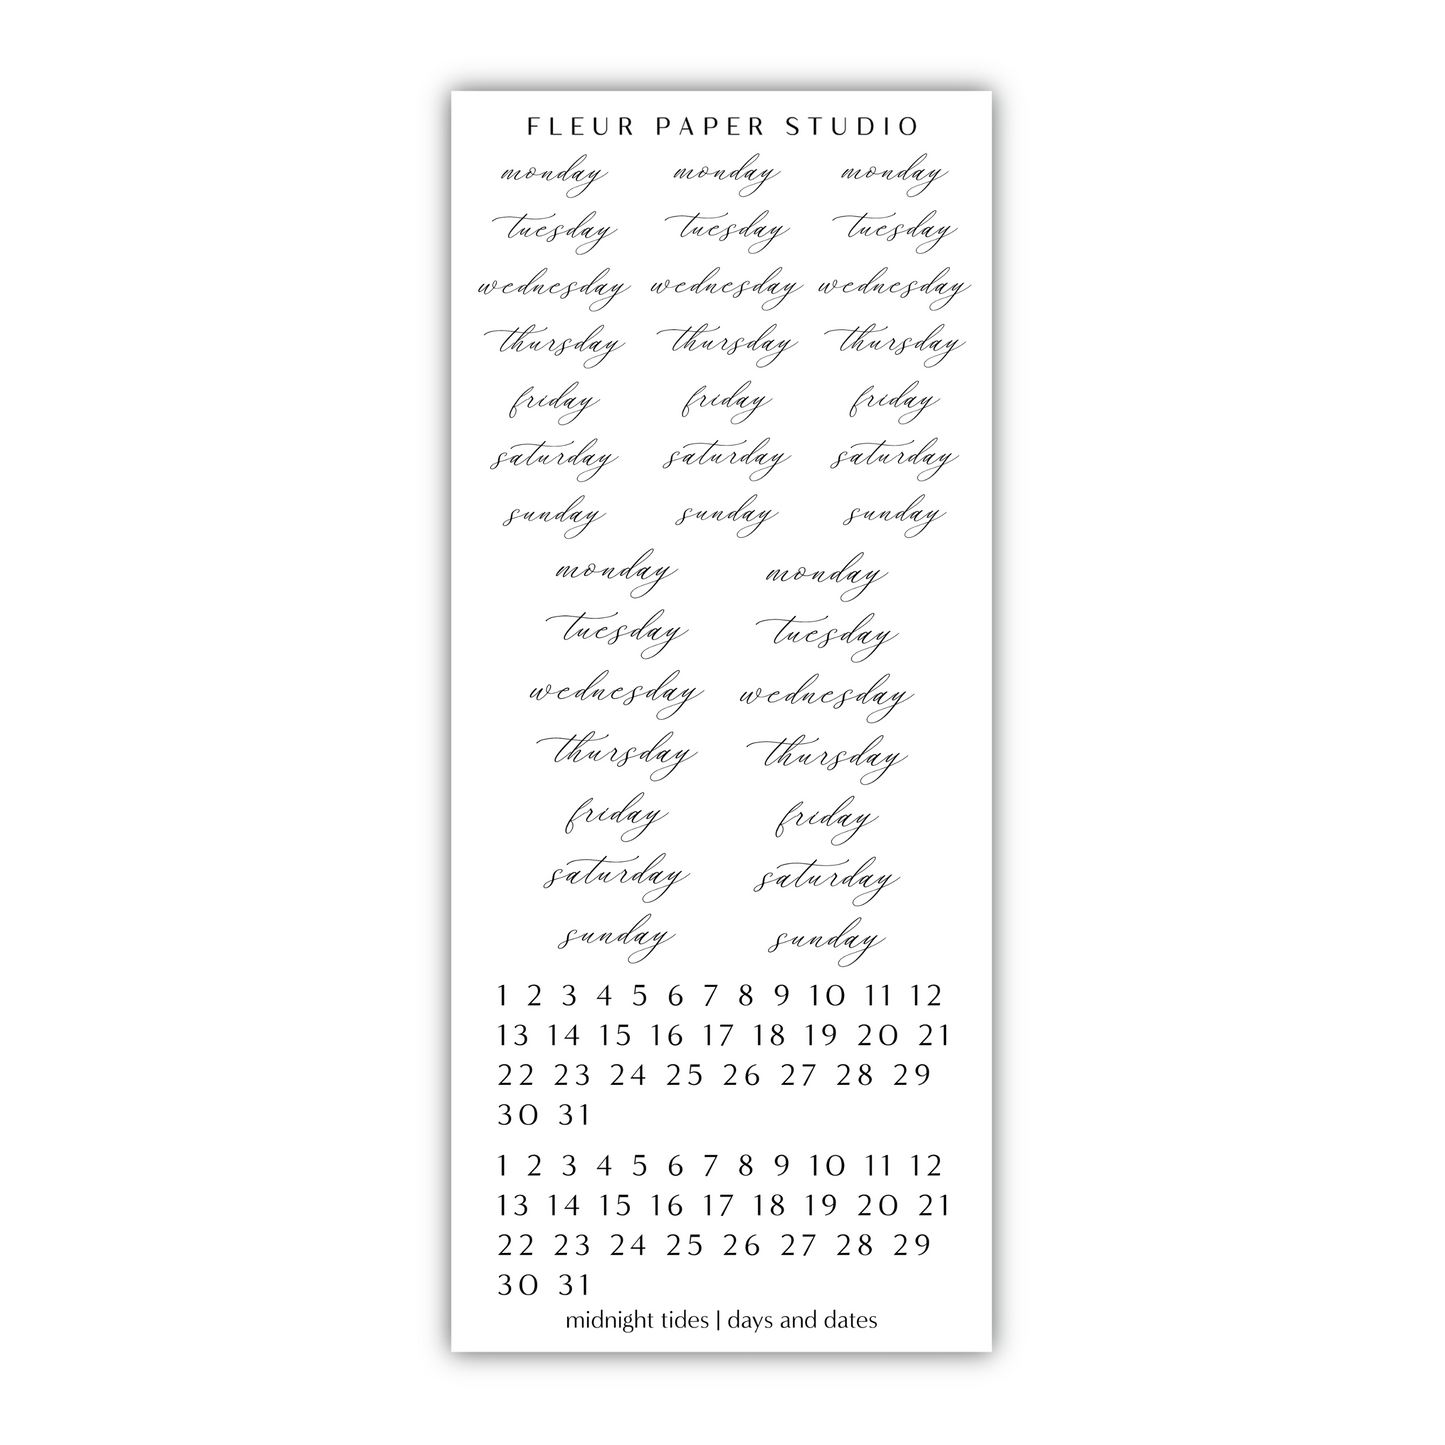 FLEUR PAPER STUDIO
monday monday monday
tuesday tuesday tuesday
wednesday wednesday wednesday
thursday thursday thursday
friday friday friday
saturday saturday saturday
sunday sunday sunday
monday monday
tuesday tuesday
wednesday wednesday
thursday thursday
friday friday
saturday saturday
sunday sunday
1 2 3 4 5 6 7 8 9 10 11 12
13 14 15 16 17 18 19 20 21
22 23 24 25 26 27 28 29
30 31
1 2 3 4 5 6 7 8 9 10 11 12
13 14 15 16 17 18 19 20 21
22 23 24 25 26 27 28 29
30 31
midnight tides | days and dates